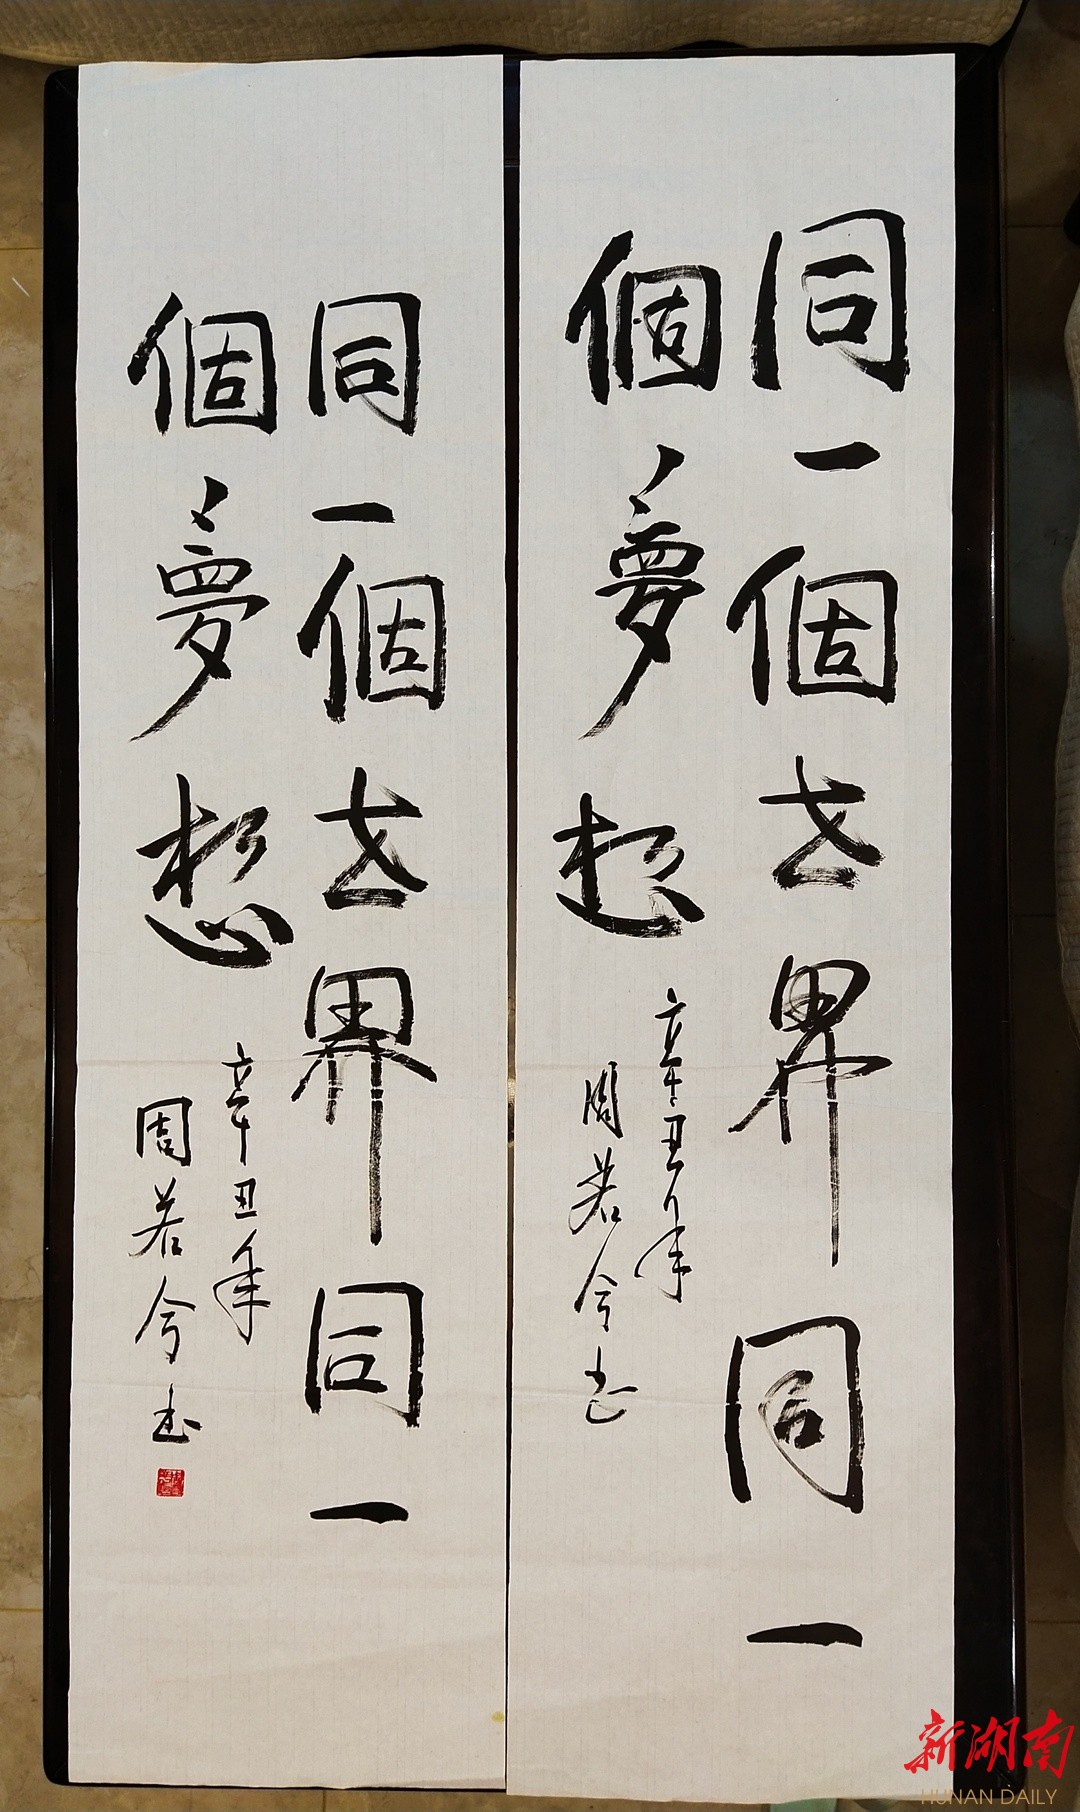 同一個世界同一
個夢想
辛丑年
周若今书
同一個世界同一
個夢想
辛丑年
周若今书
新湖南
HUNAN DAILY